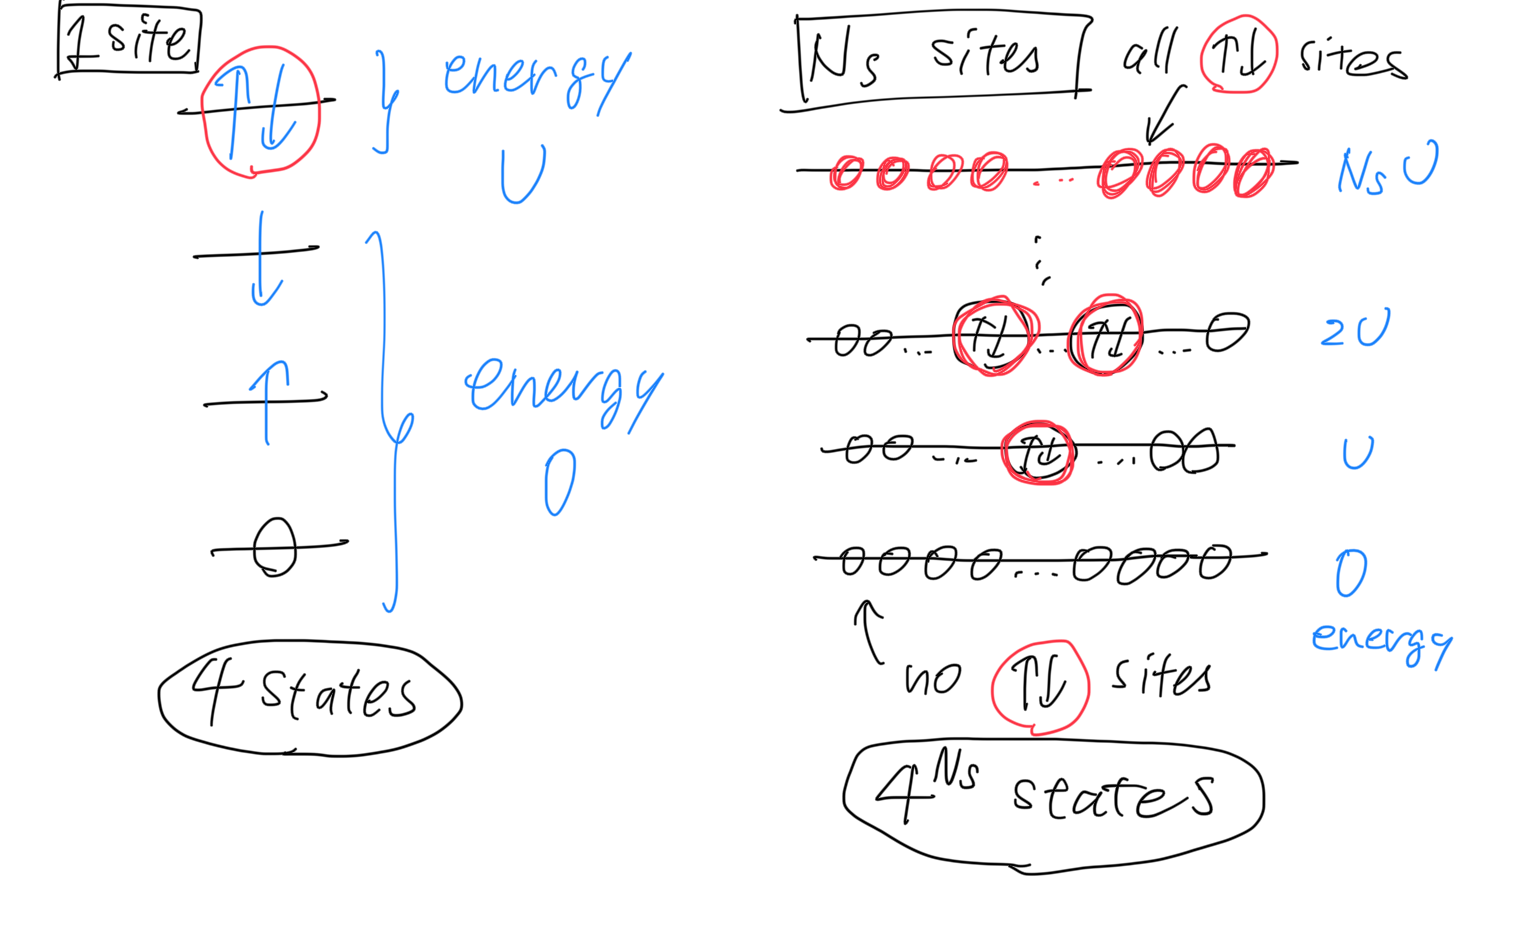 1 site
↑↓ } energy
U
↓
↑ } energy
0
0
4 states
Ns sites all ↑↓ sites
0000 ... 0000 Ns U
⋮
00 ... ↑↓ ... ↑↓ ... 0 2U
00 ... ↑↓ ... 00 U
0000 ... 0000 0
energy
no ↑↓ sites
4^Ns states